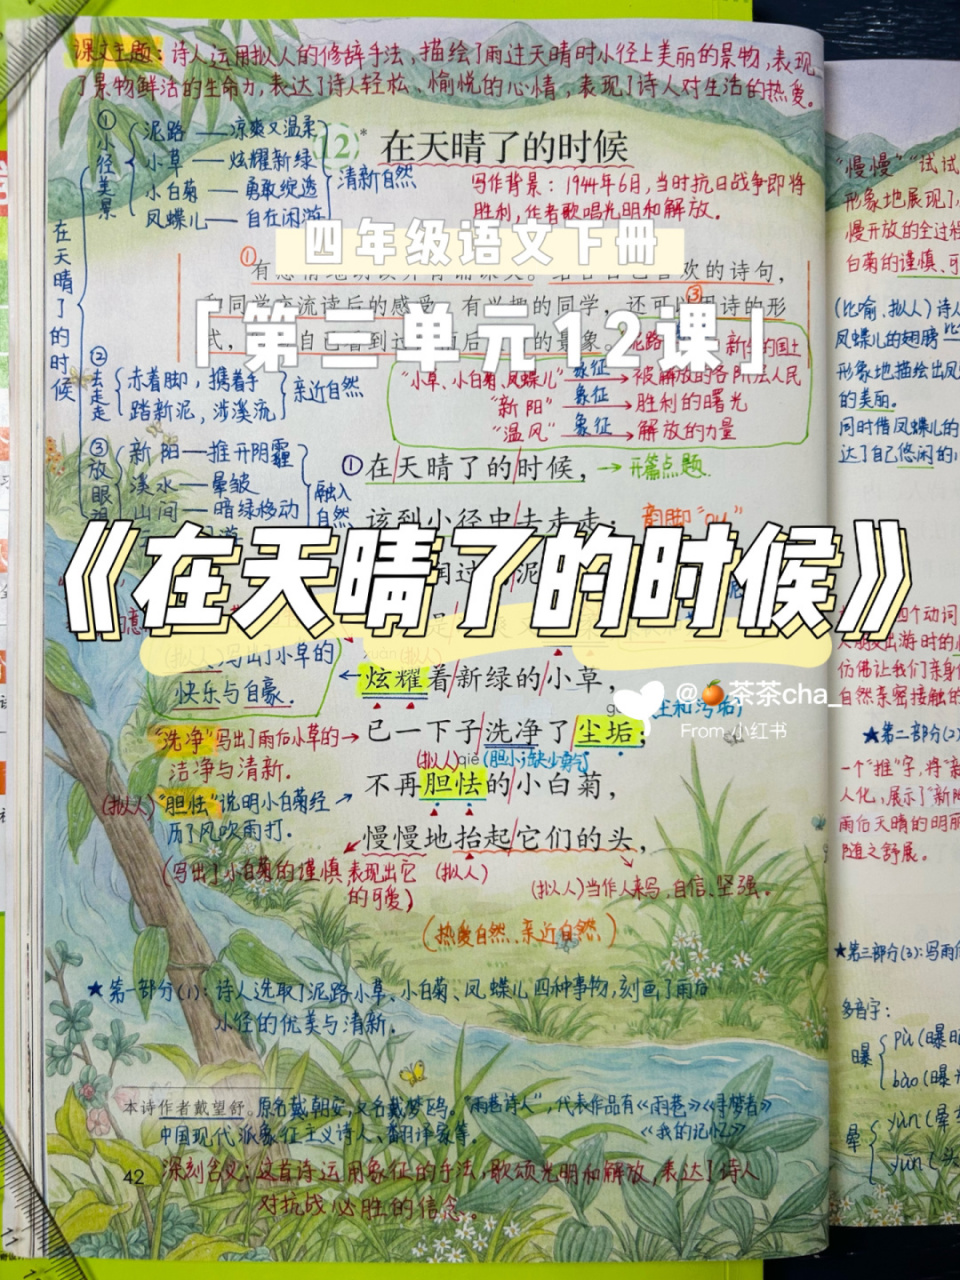 课文主题：诗人运用拟人的修辞手法，描绘了雨过天晴时小径上美丽的景物，表现
了景物鲜活的生命力，表达了诗人轻松、愉悦的心情，表现了诗人对生活的热爱。
12* 在天晴了的时候
写作背景：1944年6月，当时抗日战争即将
胜利，作者歌唱光明和解放。
在天晴了的时候
①小径美景
泥路——凉爽又温柔
小草——炫耀新绿
小白菊——勇敢绽透
凤蝶儿——自在闲游
清新自然
②去走走
赤着脚，携着手
踏新泥，涉溪流
亲近自然
③放眼
新阳——推开阴霾
溪水——晕皱
山间——暗绿移动
融入
自然
四年级语文下册
「第三单元12课」
《在天晴了的时候》
喜欢的诗句，
同学交流读后的感受。有兴趣的同学，还可以用诗的形
泥路
“小草、小白菊、凤蝶儿” 象征 被解放的各阶层人民
“新阳” 象征 胜利的曙光
“温风” 象征 解放的力量
①在天晴了的时候，→开篇点题.
该到小径中去走走
韵脚“ou”
炫耀着新绿的小草，
已一下子洗净了尘垢；
不再胆怯的小白菊，
慢慢地抬起它们的头，
(拟人)写出了小草的
快乐与自豪.
“洗净”写出了雨后小草的
洁净与清新.
(拟人)“胆怯”说明小白菊经
历了风吹雨打.
(拟人)qiè(胆小
(写出了小白菊的谨慎,表现出它
的可爱)
(拟人)
(拟人)当作人来写,自信、坚强.
(热爱自然、亲近自然)
@🍊茶茶cha_
From 小红书
★第一部分(1)：诗人选取了泥路小草、小白菊、凤蝶儿四种事物,刻画了雨后
小径的优美与清新.
本诗作者戴望舒。原名戴朝安,又名戴梦鸥。“雨巷诗人”，代表作品有《雨巷》《寻梦者》
中国现代派象征主义诗人、翻译家等.
《我的记忆》
42
深刻含义：这首诗运用象征的手法，歌颂光明和解放,表达了诗人
对抗战必胜的信念。
“慢慢”“试试
形象地展现了
慢开放的全过程
白菊的谨慎、可
(比喻、拟人)诗人
凤蝶儿的翅膀 比
形象地描绘出凤
的美丽.
同时借凤蝶儿的
达了自己悠闲的
四个动词
出游时的
仿佛让我们亲身
自然亲密接触的
★第二部分(2)
一个“推”字,将“新
人化,展示了“新阳
雨后天晴的明丽
随之舒展。
★第三部分(3):写雨后
多音字：
曝 pù(曝晒
bào(曝光
晕 yùn(晕车
yūn(头